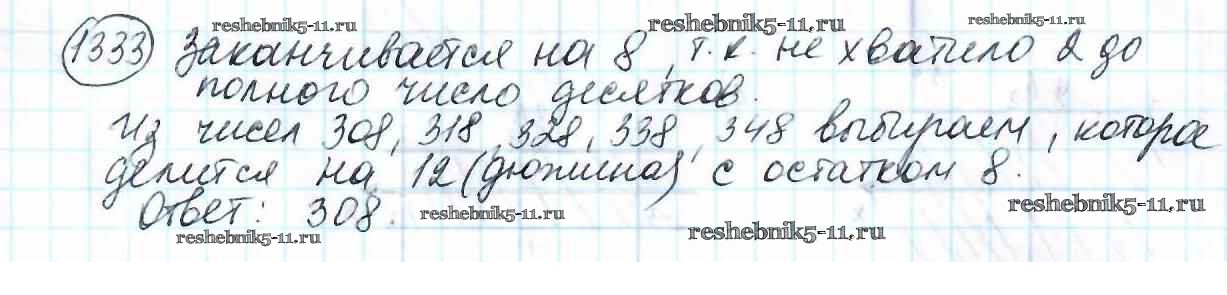 reshebnik5-11.ru reshebnik5-11.ru reshebnik5-11.ru
1333 Заканчивается на 8, т.к. не хватило 2 до
полного число десятков.
Из чисел 308, 318, 328, 338, 348 выбираем, которое
делится на 12 (дюжина) с остатком 8.
Ответ: 308. reshebnik5-11.ru reshebnik5-11.ru
reshebnik5-11.ru reshebnik5-11.ru